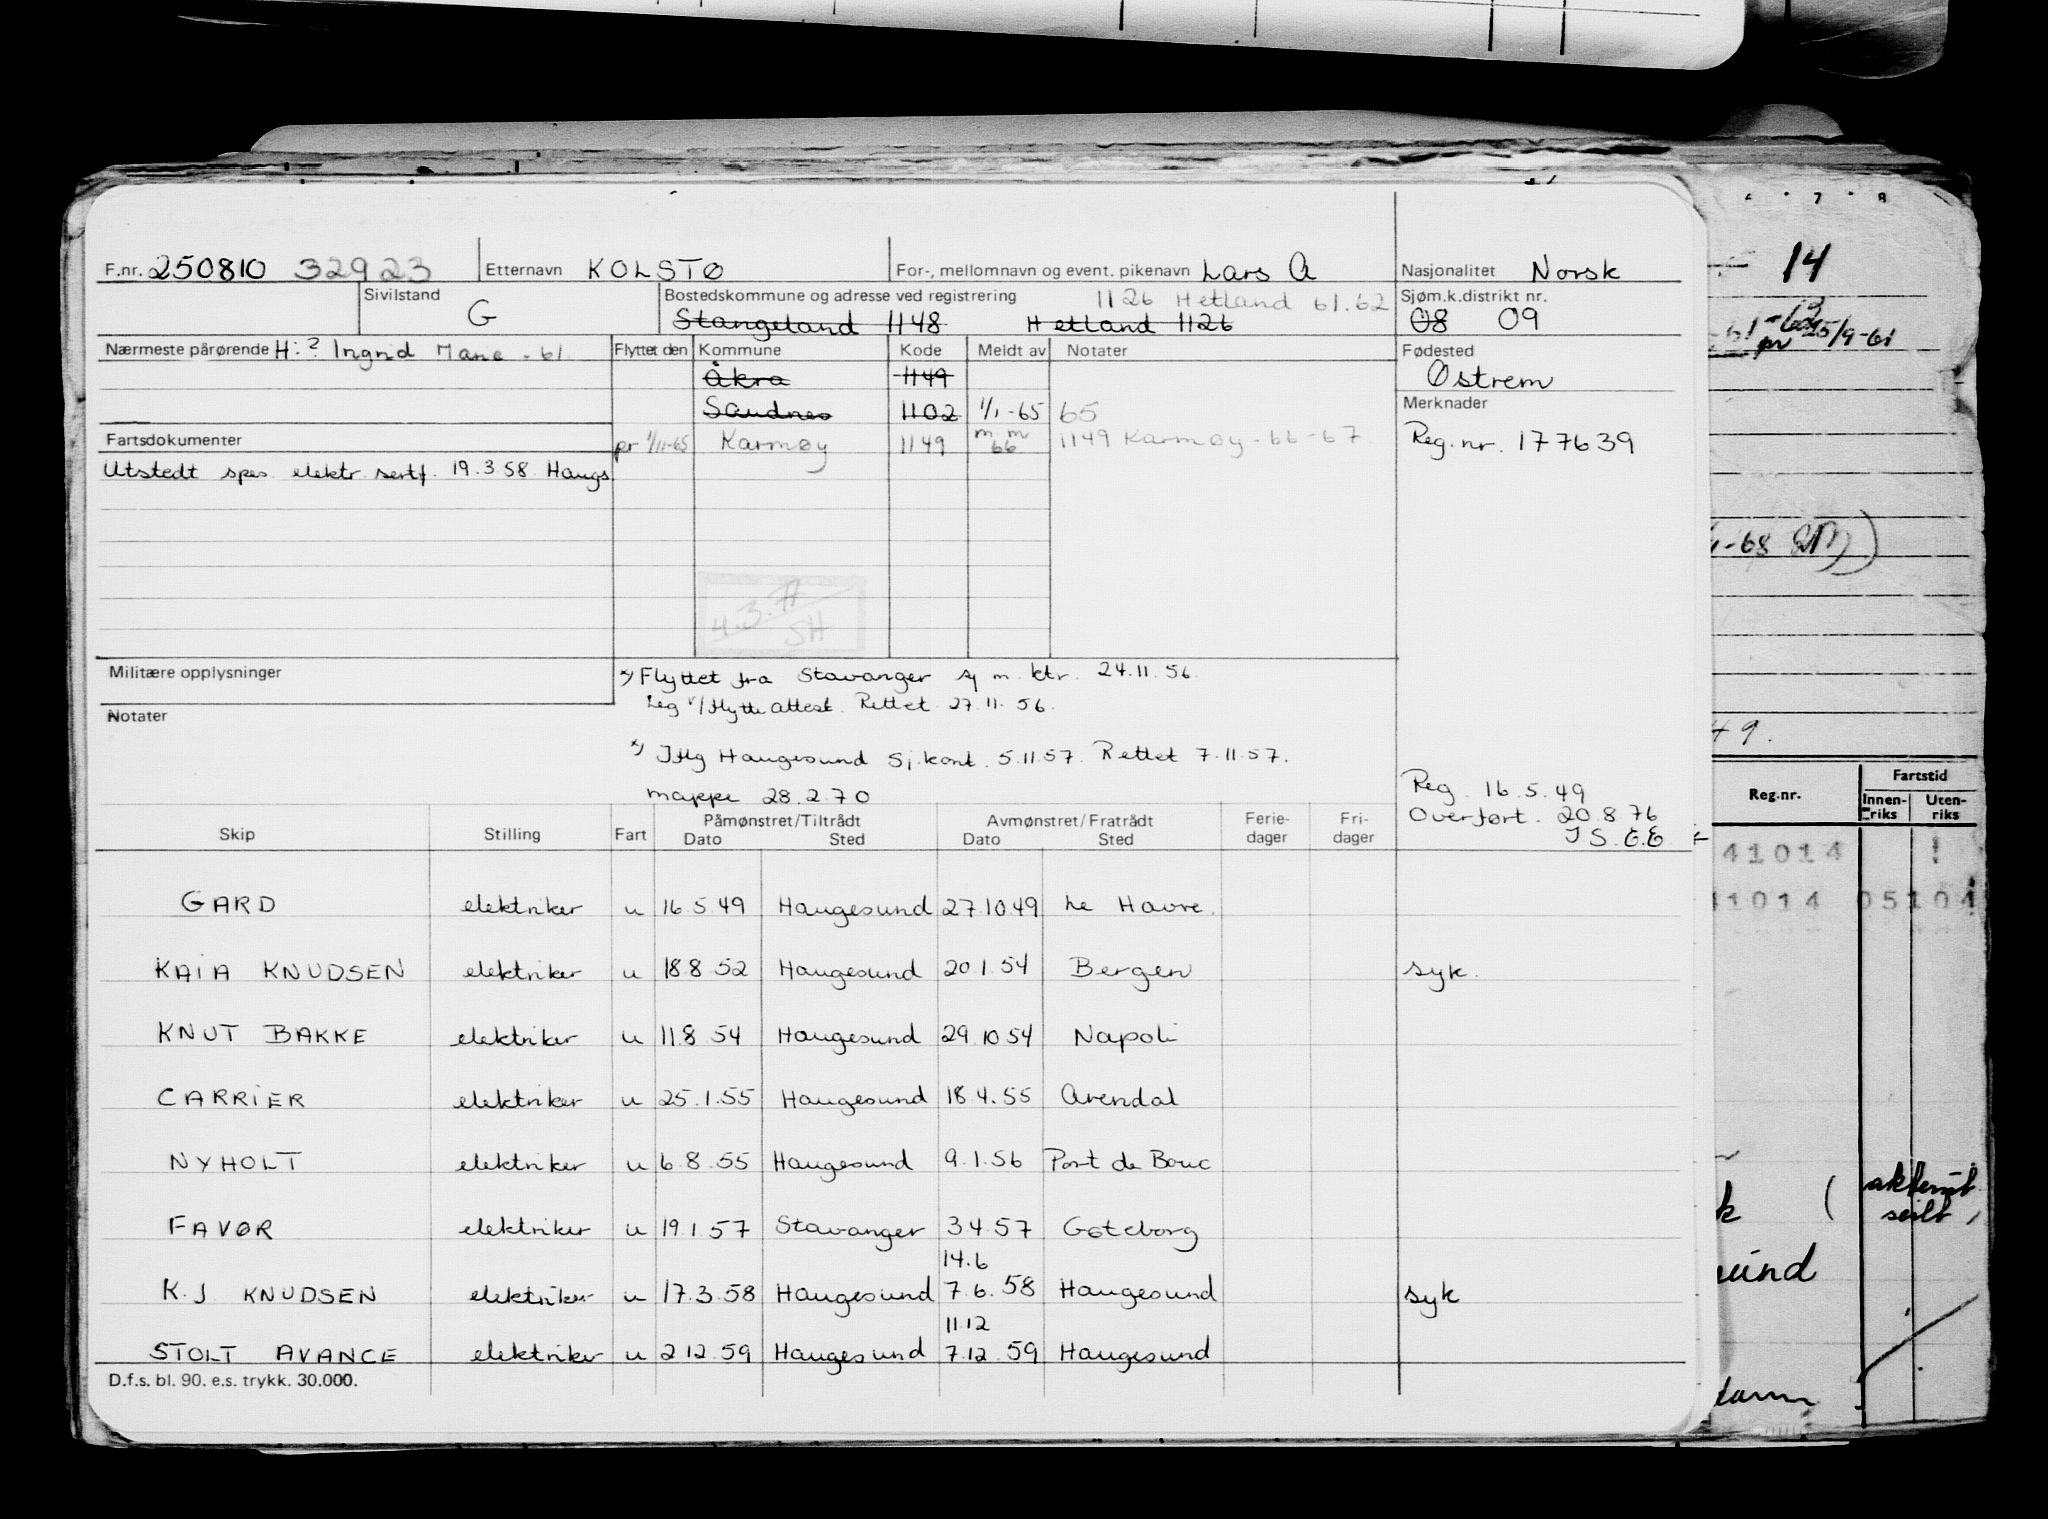 F.nr. 250810 32923 Etternavn KOLSTØ For-, mellomnavn og event. pikenavn Lars A Nasjonalitet Norsk
Sivilstand G Bostedskommune og adresse ved registrering 1126 Hetland 61.62 Sjøm.k.distrikt nr.
Stangeland 1148 Hetland 1126 08 09
Nærmeste pårørende H:? Ingrid Mane - 61 Flyttet den Kommune Kode Meldt av Notater Fødested
Åkra 1149 Østrem
Sandnes 1102 1/1-65 65 Merknader
Fartsdokumenter pr 1/11-65 Karmøy 1149 m.m 66 1149 Karmøy - 66 - 67 Reg.nr. 177639
Utstedt spes elektr. sertf. 19.3.58 Haugs
4.3.77
SH
Militære opplysninger
x) Flyttet fra Stavanger sj m. ktr. 24.11.56.
Leg v/flytteattest. Rettet 27.11.56.
Notater
x) Haugesund Sj.kont. 5.11.57. Rettet 7.11.57.
mappe 28.2.70
Reg. 16.5.49
Overført. 20.8.76
Skip Stilling Fart Påmønstret/Tiltrådt Dato Sted Avmønstret/Fratrådt Dato Sted Ferie-dager Fri-dager
GARD elektriker u 16.5.49 Haugesund 27.10.49 Le Havre.
KAIA KNUDSEN elektriker u 18.8.52 Haugesund 20.1.54 Bergen syk.
KNUT BAKKE elektriker u 11.8.54 Haugesund 29.10.54 Napoli
CARRIER elektriker u 25.1.55 Haugesund 18.4.55 Arendal
NYHOLT elektriker u 6.8.55 Haugesund 9.1.56 Port de Bouc
FAVØR elektriker u 19.1.57 Stavanger 3.4.57 Gøteborg
14.6
K.J. KNUDSEN elektriker u 17.3.58 Haugesund 7.6.58 Haugesund syk
11.12
STOLT AVANCE elektriker u 2.12.59 Haugesund 7.12.59 Haugesund
D.f.s. bl. 90. e.s. trykk. 30.000.
7 8
14
25/9-61
-68
49.
Reg.nr. Fartstid
Innen-riks Uten-riks
41014
1014 05104
sund